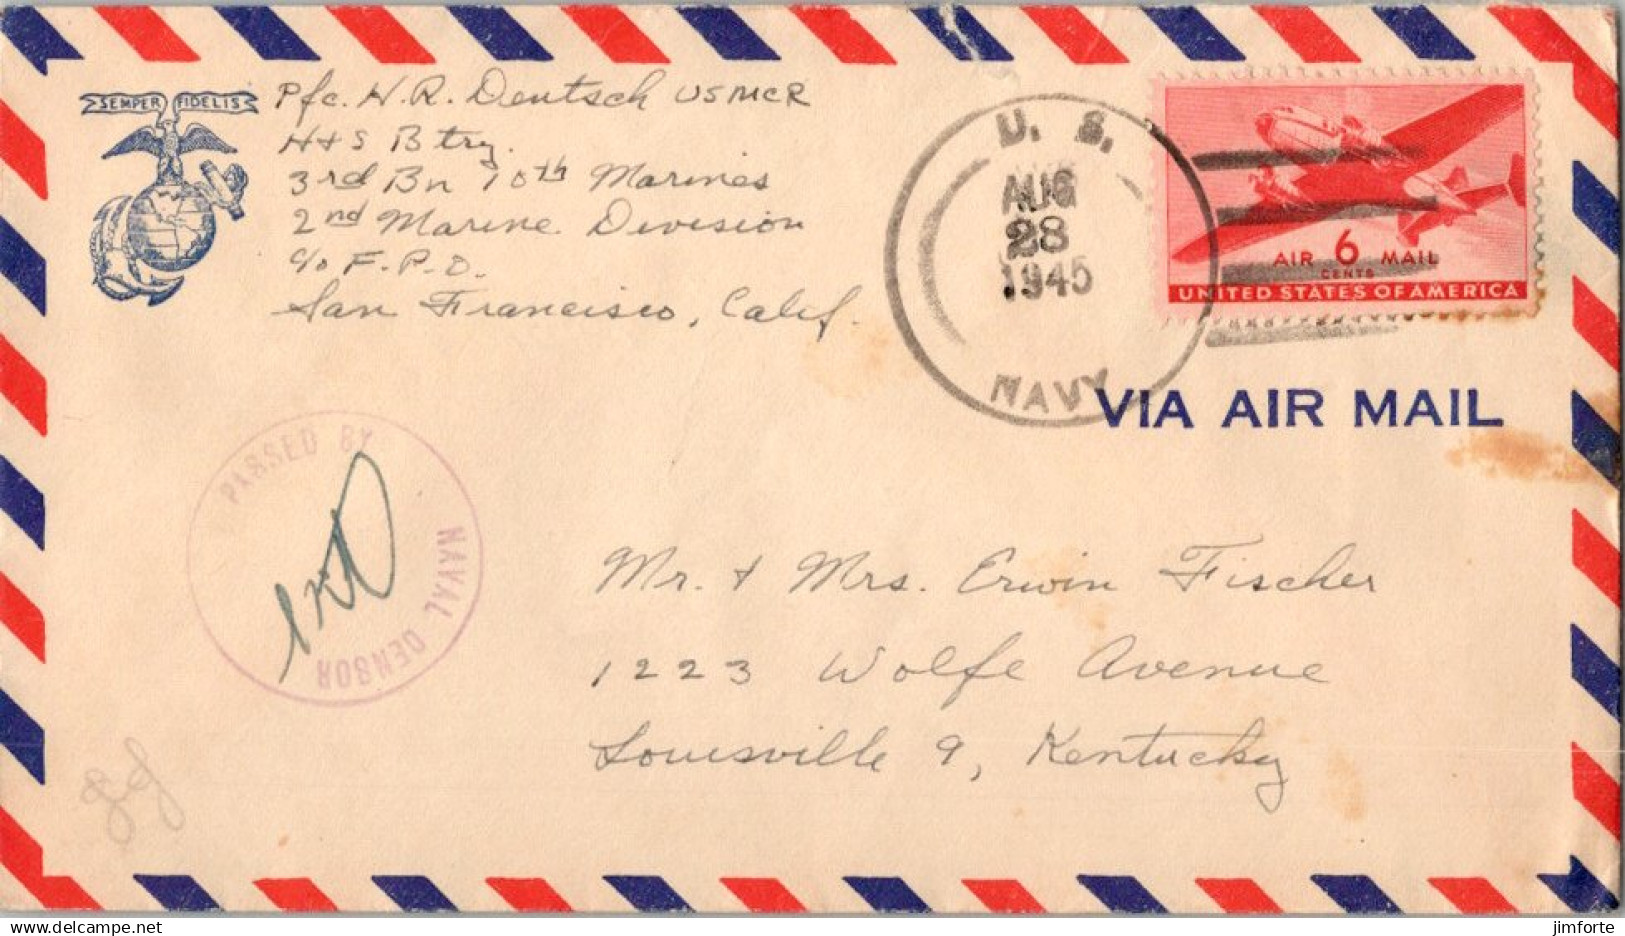 SEMPER FIDELIS
Pfc. H. R. Deutsch USMCR
H+S Btry.
3rd Bn 10th Marines
2nd Marine Division
c/o F.P.O.
San Francisco, Calif.
U. S.
AUG
28
1945
NAVY
AIR 6 MAIL
CENTS
UNITED STATES OF AMERICA
VIA AIR MAIL
PASSED BY
NAVAL CENSOR
Mr. + Mrs. Erwin Fischer
1223 Wolfe Avenue
Louisville 9, Kentucky
delcampe.net
jimforte